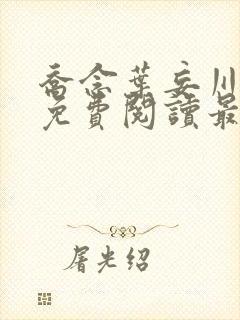 喬念葉妄川
免費閱讀最
屠光绍